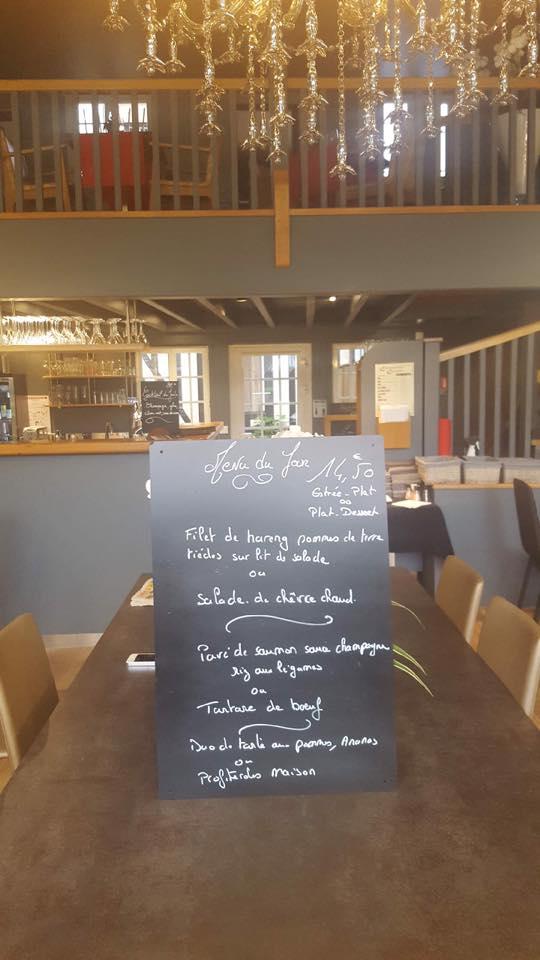 Menu du Jour 14,50 €
Entrée-Plat
ou
Plat-Dessert
Filet de hareng pommes de terre
tièdes sur lit de salade
ou
Salade de chèvre chaud.
Pavé de saumon sauce champagne
riz aux légumes
ou
Tartare de boeuf
Duo de tarte aux pommes, Ananas
ou
Profiteroles Maison
Cocktail du Jour